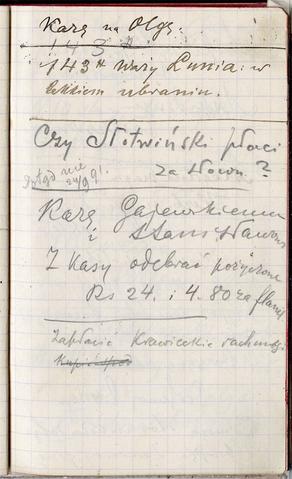 Karę na Olgę.
143 ℔
143 ℔ waży Lunia: w
lekkiem ubraniu.
Czy Słotwiński płaci
za słown.?
Dotąd nie
24/9 91.
Karę Gajewskiemu
i Stanisławowi
Z Kasy odebrać pożyczone
Rs 24. i 4.80 za flanel
Zapłacić Krawieckie rachunki
Kupić